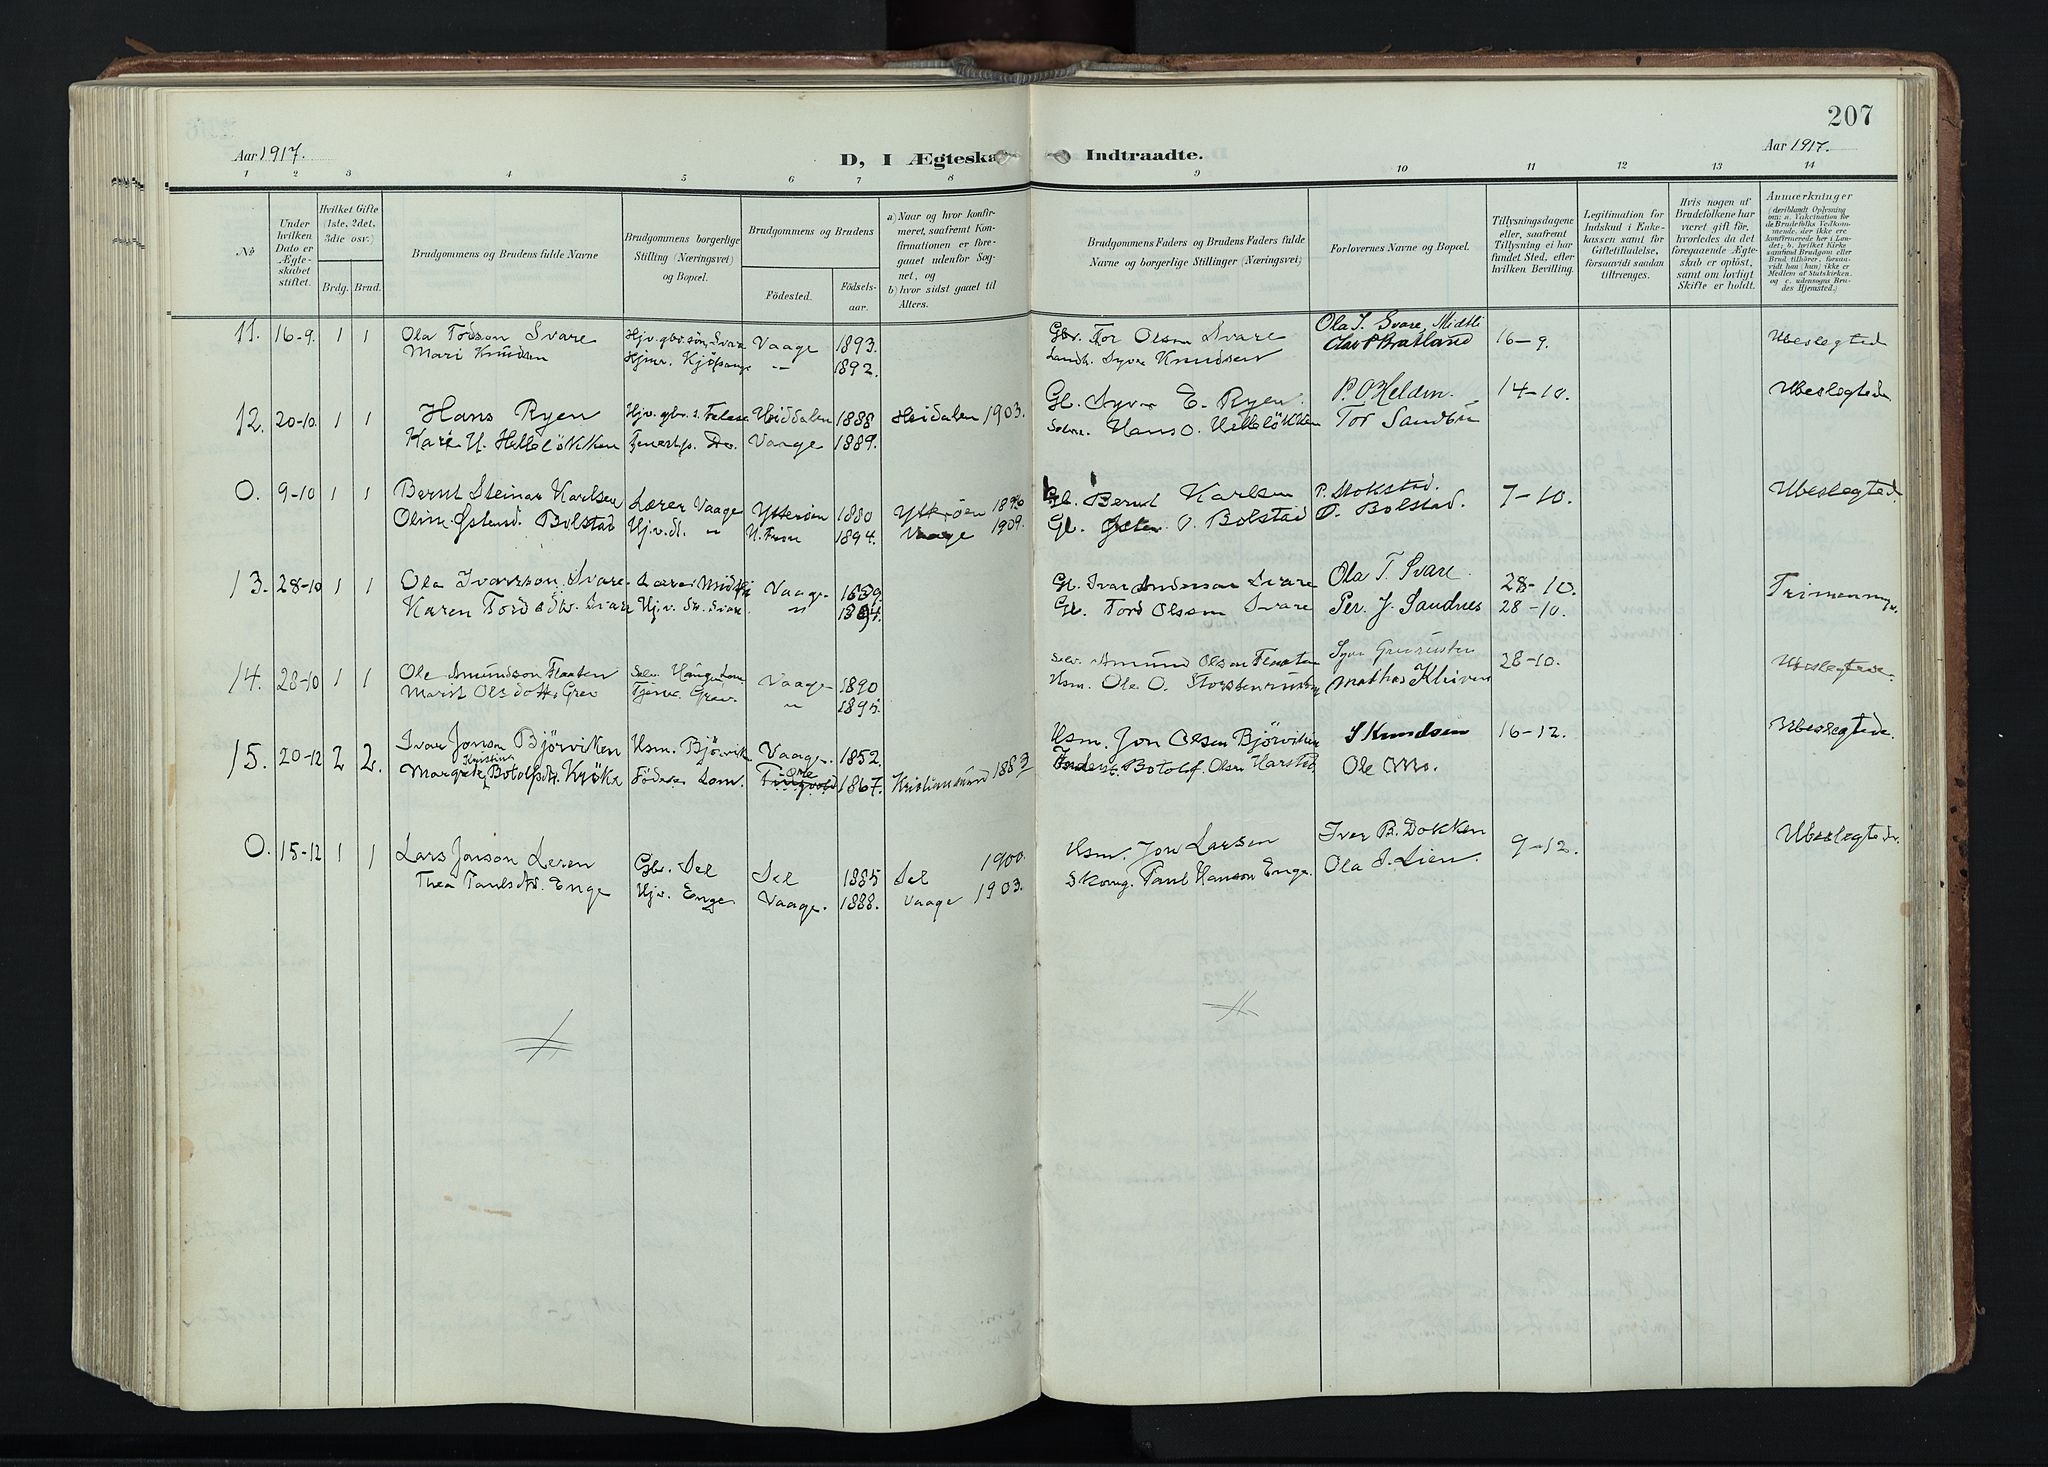 207
Aar 1917.
D, I Ægteska
Indtraadte.
Aar 1917.
1 2 3 4 5 6 7 8 9 10 11 12 13 14
No
Under hvilken Dato er Ægteskabet stiftet.
Hvilket Gifte (1ste, 2det, 3die osv.)
Brdg. Brud.
Brudgommens og Brudens fulde Navne
Brudgommens borgerlige Stilling (Næringsvei) og Bopæl.
Brudgommens og Brudens
Fødested.
Fødselsaar.
a) Naar og hvor konfirmeret, saafremt Konfirmationen er foregaaet udenfor Sognet, og
b) hvor sidst gaaet til Alters.
Brudgommens Faders og Brudens Faders fulde Navne og borgerlige Stillinger (Næringsvei)
Forlovernes Navne og Bopæl.
Tillysningsdagene eller, saafremt Tillysning ei har fundet Sted, efter hvilken Bevilling.
Legitimation for Indskud i Enkekassen samt for Giftetilladelse, forsaavidt saadan tiltrænges.
Hvis nogen af Brudefolkene har været gift før, hvorledes da det foregaaende Ægteskab er opløst, samt om lovligt Skifte er holdt.
Anmærkninger
(deriblandt Oplysning om: a. Vakcination for de Brudefolks Vedkommende, der ikke ere konfirmerede her i Landet; b. hvilket Kirkesamfund Brudgom eller Brud tilhører, forsaavidt han (hun) ikke er Medlem af Statskirken, og c. udensogns Brudes Hjemsted.)
11. 16-9. 1 1 Ola Tordson Svare Hjv. gbr. søn, Svare Vaage 1893. Gbr. Tor Olsen Svare Ola T. Svare, Midtli 16-9. Ubeslegtede
Mari Knudsen 1892. Landh. Syver Knudsen
12. 20-10 1 1 Hans Ryen Hjv. gbr. s. Heidalen 1888 Heidalen 1903. Gb. Syver E. Ryen P. O. Heldem 14-10. Ubeslegtede
Kari H. Helleløkken Vaage 1889. Hans O. Helleløkken Tor Sandbu
O. 9-10 1 1 Bernt Steinar Karlsen Lærer Vaage Ytterøen 1880 Ytterøen Gb. Bernt Karlsen P. Stokstad. 7-10. Ubeslegtede
Oline Østensd. Bolstad Hjv. d. " N. Fron 1894. Vaage 1909. Gb. Østen O. Bolstad O. Bolstad.
13. 28-10 1 1 Ola Ivarsson Svare Lærer Midtli Vaage Gb. Ivar Anderson Svare Ola T. Svare. 28-10. Trimenninger
Karen Tordsdtr. Svare Hjv. Svare " 1894. Gb. Tord Olssen Svare Per. J. Sandnes 28-10.
14. 28-10 1 1 Ole Amundson Flaaten Selv. Vaage 1890 Selv. Amund Olsen Flaaten 28-10. Ubeslegtede.
Marit Olsdotter Grev Tjene. Grev. " 1895. Hsm. Ole O. Mathias Kleiven
15. 20-12 2 2. Ivar Jonson Bjørviken Hsm. Bjørvik Vaage 1852. Hsm. Jon Olsen Bjørviken S Knudsen 16-12. Ubeslegtede.
Margrete Kristina Botolfsdtr. Kjøk Lom. Tingvold 1867. Kristiansund 1883 Botolf Olsen Harstad Ole Mo.
O. 15-12 1 1 Lars Jonson Leren Gbr. Sel Sel 1885 Sel 1900. Hsm. Jon Larsen Iver B. Dokken 9-12. Ubeslegtede.
Thea Paulsdtr. Enge Hjv. Enge Vaage. 1888. Vaage 1903. Skomg. Paul Hanson Enge. Ola J. Lien.